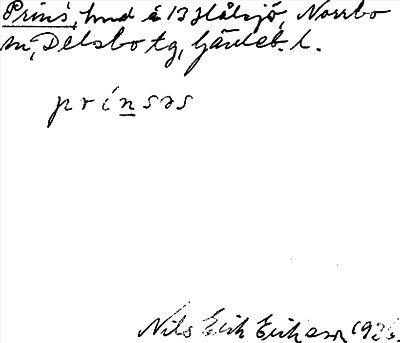 Prins, hund å 13 Hålsjö, Norrbo
sn, Delsbo tg, Gävleb. l.
prínsəs
Nils Erik Erikson